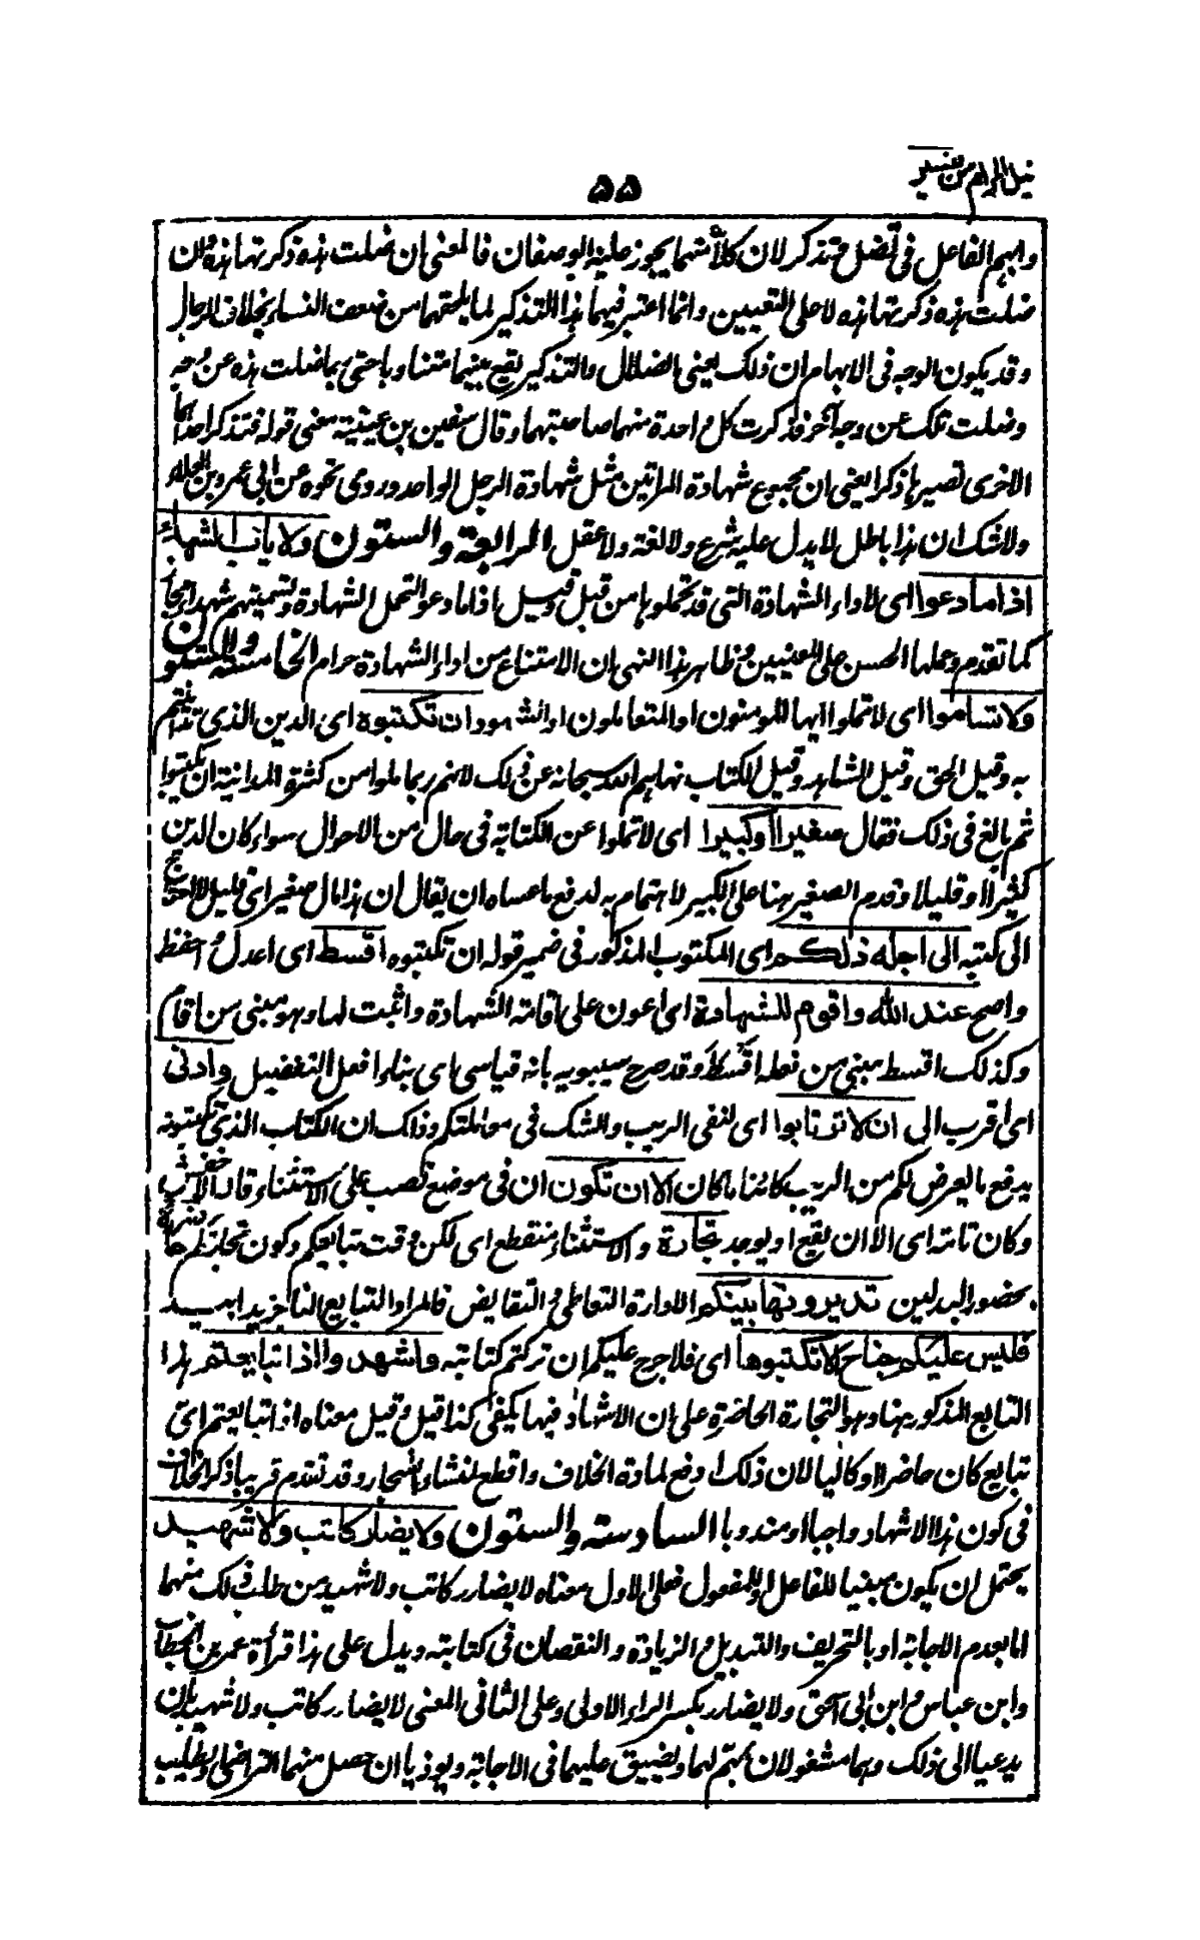 نيل المرام من تفسير
۵۵
وابهم الفاعل فى تضل وتذكر لان كلا منهما يجوز عليه الوصفان فالمعنى ان ضلت هذه ذكرتها هذه وان
ضلت هذه ذكرتها هذه لا على التعيين وانما اعتبر فيهما هذا التذكير لما يلحقهما من ضعف النساء بخلاف الرجال
وقد يكون الوجه فى الابهام ان ذلك يعنى الضلال والتذكير يقع بينهما متناوبا حتى ربما ضلت هذه عن وجه
وضلت تلك عن وجه آخر فذكرت كل واحدة منهما صاحبتها وقال سفين بن عيينة معنى قوله فتذكر احداهما
الاخرى تصيرها ذكرا يعنى ان مجموع شهادة المراتين مثل شهادة الرجل الواحد وروى نحوه عن ابى عمرو بن العلاء
ولا شك ان هذا باطل لا يدل عليه شرع ولا لغة ولا عقل الرابعة والستون ولا يأب الشهداء
اذا ما دعوا اى لاداء الشهادة التى قد تحملوها من قبل وقيل اذا ما دعوا لتحمل الشهادة وتسميتهم شهداء مجازا
كما تقدم وحملها الحسن على المعنيين وظاهر هذا النهى ان الامتناع من اداء الشهادة حرام الخامسة والستون
ولا تسأموا اى لا تملوا ايها المومنون او المتعاملون او الشهود ان تكتبوه اى الدين الذى تداينتم
به وقيل الحق وقيل الشاهد وقيل الكتاب نهاهم الله سبحانه عن ذلك لانهم ربما ملوا من كثرة المداينة ان يكتبوا
ثم بالغ فى ذلك فقال صغيرا او كبيرا اى لا تملوا عن الكتابة فى حال من الاحوال سواء كان الدين
كثيرا او قليلا وقدم الصغير هنا على الكبير لاهتمام به لدفع ما عساه ان يقال ان هذا مال صغير اى قليل لا احتاج
الى كتبه الى اجله ذلكم اى المكتوب المذكور فى ضمير قوله ان تكتبوه اقسط اى اعدل واحفظ
واصح عند الله واقوم للشهادة اى اعون على اقامة الشهادة واثبت لها وهو مبنى من اقام
وكذلك اقسط مبنى من فعله اقسط وقد صرح سيبويه بانه قياسى اى بناء افعل التفضيل وادنى
اى اقرب الى ان لا ترتابوا اى لنفى الريب والشك فى معاملتكم وذلك ان الكتاب الذى تكتبونه
يدفع ما يعرض لكم من الريب كائنا ما كان الا ان تكون ان فى موضع نصب على الاستثناء قاله الاخفش
وكان تامة اى الا ان يقع او يوجد تجارة والاستثناء منقطع اى لكن وقت تبايعكم وكون تجارتكم حاضرة
بحضور البدلين تديرونها بينكم الادارة التعاطى والتقابض فالمراد التبايع الناجز يدا بيد
فليس عليكم جناح الا تكتبوها اى فلا حرج عليكم ان تركتم كتابته واشهدوا اذا تبايعتم هذا
التبايع المذكور هنا وهو التجارة الحاضرة على ان الاشهاد فيها يكفى كذا قيل وقيل معناه اذا تبايعتم اى
تبايع كان حاضرا او كاليا لان ذلك ادفع لمادة الخلاف واقطع لمنشاء الشجار وقد تقدم قريبا ذكر الخلاف
فى كون هذا الاشهاد واجبا او مندوبا السادسة والستون ولا يضار كاتب ولا شهيد
يحتمل ان يكون مبنيا للفاعل او للمفعول فعلى الاول معناه لا يضارر كاتب ولا شهيد من طلب ذلك منهما
اما بعدم الاجابة او بالتحريف والتبديل والزيادة والنقصان فى كتابته ويدل على هذا قرأة عمر بن الخطاب
وابن عباس وابن ابى اسحق ولا يضارر بكسر الراء الاولى وعلى الثانى المعنى لا يضارر كاتب ولا شهيد بان
يدعيا الى ذلك وهما مشغولان بمهم لهما ويضيق عليهما فى الاجابة ويوذيا ان حصل منهما التراضى او يطلب